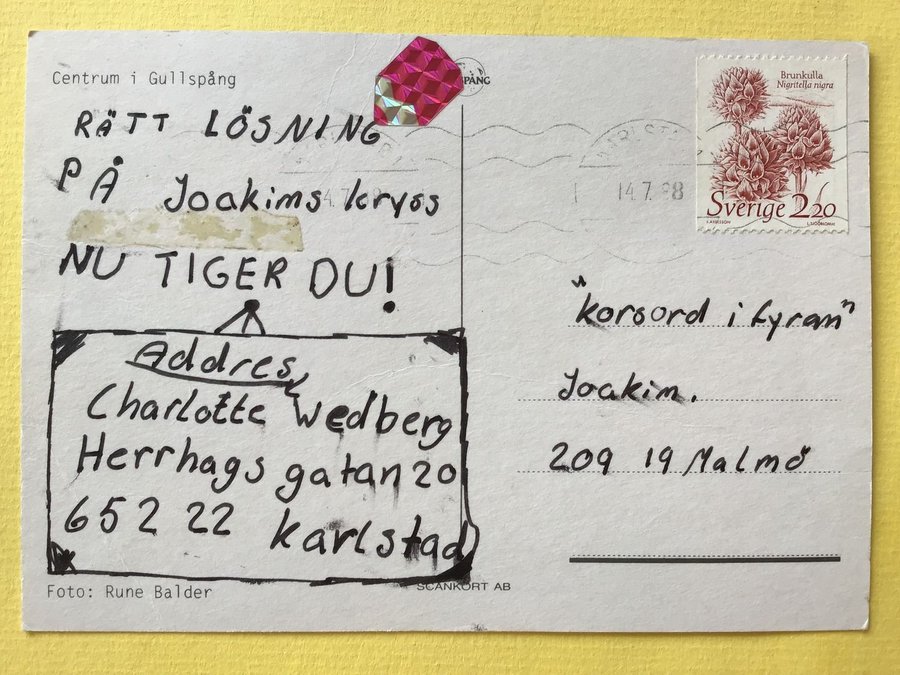 Centrum i Gullspång
RÄTT LÖSNING
PÅ Joakims kryss
NU TIGER DU!
Addres
Charlotte Wedberg
Herrhags gatan 20
652 22 Karlstad
Foto: Rune Balder
SCANKORT AB
PÅNG
14.7.88
Brunkulla
Nigritella nigra
Sverige 220
"korsord i fyran"
Joakim.
209 19 Malmö